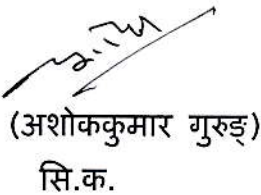 (अशोककुमार गुरुङ)
सि.क.